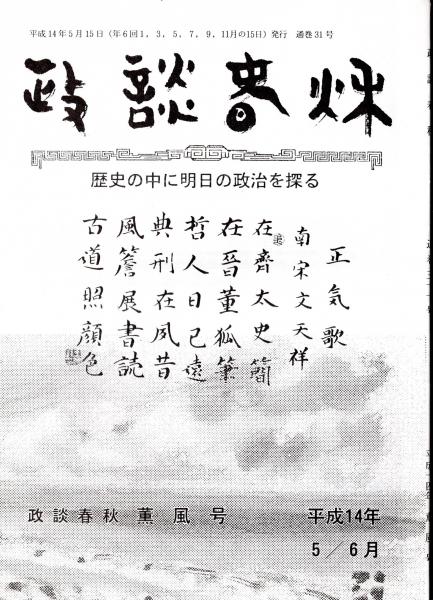 平成14年5月15日（年6回1，3，5，7，9，11月の15日）発行　通巻31号
政談春秋
歴史の中に明日の政治を探る
正気歌
南宋文天祥
在齊太史簡
在晉董狐筆
哲人日已遠
典刑在夙昔
風簷展書読
古道照顔色
政談春秋 薫風号　平成14年
5／6月